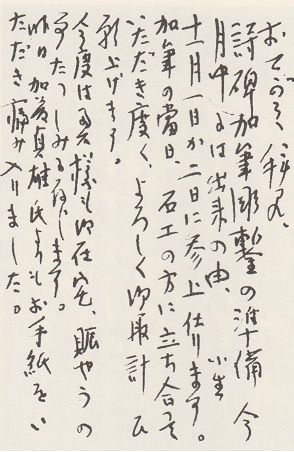 おてがみ拝見、
詩碑加筆彫鑿の準備今
月中には出来の由、小生
十一月一日か二日に参上仕ります。
加筆の當日、石工の方に立ち合つて
いただき度く、よろしく御取計ひ
願上げます。
今度は奥様も御在宅、賑やかの
事たのしみに存じます。
昨日加藤貞雄氏よりもお手紙をい
ただき痛み入りました。